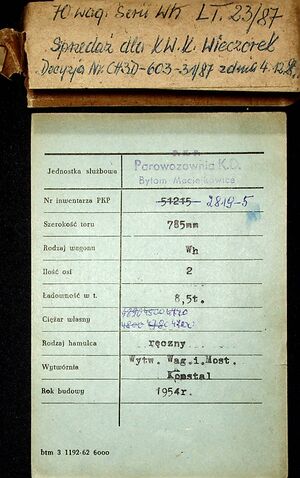 10 wag. Serii Wh LT. 23/87
Sprzedaż dla K.W.K. Wieczorek
Decyzja Nr. CH3D-603-31/87 z dnia 4.12.87
P.K.P.
Jednostka służbowa Parowozownia K.D.
Bytom Maciejkowice
Nr inwentarza PKP 51215 2819-5
Szerokość toru 785mm
Rodzaj wagonu Wh
Ilość osi 2
Ładowność w t. 8,5t.
Ciężar własny
4800 4720
Rodzaj hamulca ręczny
Wytwórnia Wytw. Wag.i.Most.
Konstal
Rok budowy 1954r.
btm 3 1192-62 6000